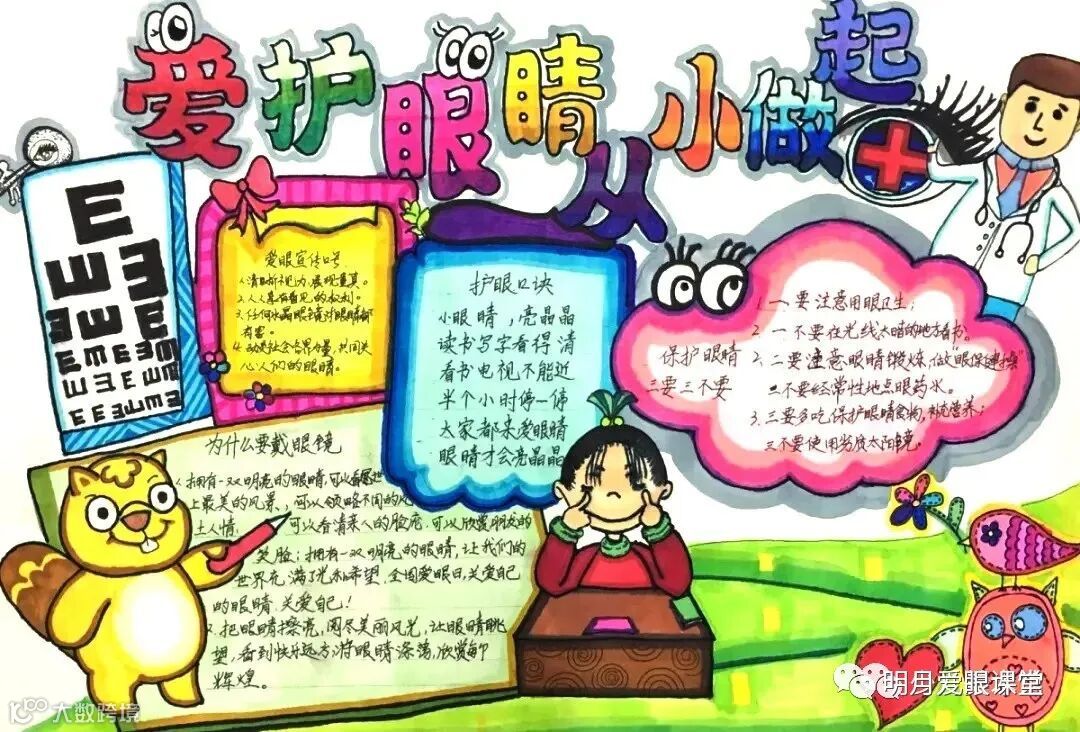 爱护眼睛从小做起
E
E E
E E E
爱眼宣传口号
2.人人享有看见的权利。
有害。
心人们的眼睛。
护眼口诀
小眼睛，亮晶晶
读书写字看得清
看书电视不能近
半个小时停一停
大家都来爱眼睛
眼睛才会亮晶晶
保护眼睛
三要三不要
1.一要注意用眼卫生;
2.一不要在光线太暗的地方看书。
2.二要注意眼睛锻炼,做"眼保健操"
二不要经常性地点眼药水。
3.三要多吃保护眼睛食物,补充营养;
三不要使用劣质太阳镜。
为什么要戴眼镜
拥有一双明亮的眼睛,可以看
上最美的风景,可以领略不同的风
土人情。可以看清亲人的脸庞,可以欣赏朋友的
笑脸;拥有一双明亮的眼睛,让我们的
世界充满了光和希望,全国爱眼日,关爱自己
的眼睛,关爱自己!
把眼睛擦亮,阅尽美丽风光,让眼睛眺
望,看到快乐远方;将眼睛涤荡,欣赏
辉煌。
明月爱眼课堂
大数跨境